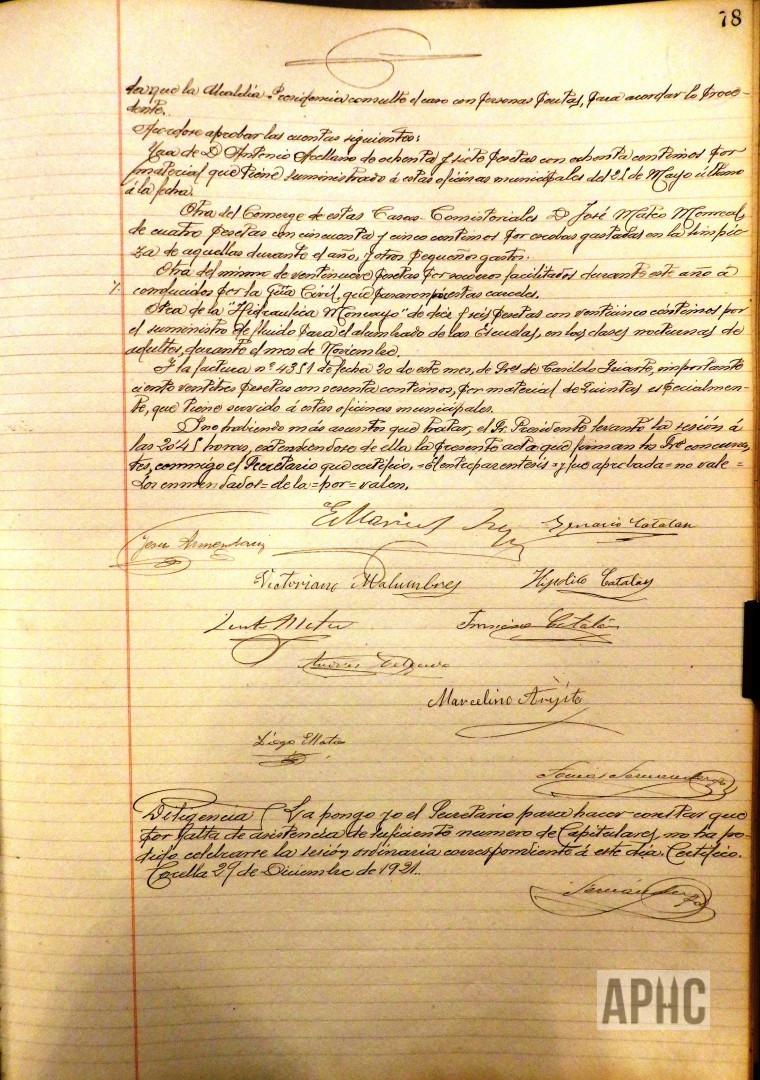 78
da que la Alcaldía-Presidencia consulte el caso con personas peritas, para acordar lo proce-
dente.
Acordose aprobar las cuentas siguientes:
Una de D. Antonio Arellano de ochenta y siete pesetas con ochenta centimos por
material que tiene suministrado á estas oficinas municipales del 21 de Mayo último
á la fecha.
Otra del Conserge de estas Casas-Consistoriales D. José Mateo Monreal,
de cuatro pesetas con cincuenta y cinco centimos por escobas gastadas en la limpie-
za de aquellas durante el año, y otros pequeños gastos.
Otra del mismo de ventinueve pesetas por socorros facilitados durante este año á
conducidos por la Gª Civil, que pasaron por estas carceles.
Otra de la "Hidraulica Moncayo" de diez y seis pesetas con venticinco céntimos por
el suministro de fluido para el alumbrado de las Escuelas, en las clases nocturnas de
adultos, durante el mes de Noviembre.
Y la factura nº 4351 de fecha 20 de este mes, de Sres de Casildo Iriarte, importante
ciento ventitres pesetas con sesenta centimos, por material de Quintas especialmen-
te, que tiene servido á estas oficinas municipales.
Y no habiendo más asuntos que tratar, el Sr. Presidente levantó la sesión á
las 20'45 horas, extendiendose de ella la presente acta que firman los Sres concurren-
tes, conmigo el Secretario que certifico. = El entreparentesis = y fue aprobada = no vale =
Los enmendados = de la = por = valen.
Genaro Catalan
Victoriano Malumbres Hipolito Catalan
Mateo Francisco Catalán
Marcelino Arigita
Diego Mateo
Diligencia La pongo yo el Secretario para hacer constar que
por falta de asistencia de suficiente numero de Capitulares, no ha po-
dido celebrarse la sesión ordinaria correspondiente á este dia. Certifico.
Corella 27 de Diciembre de 1921.
APHC